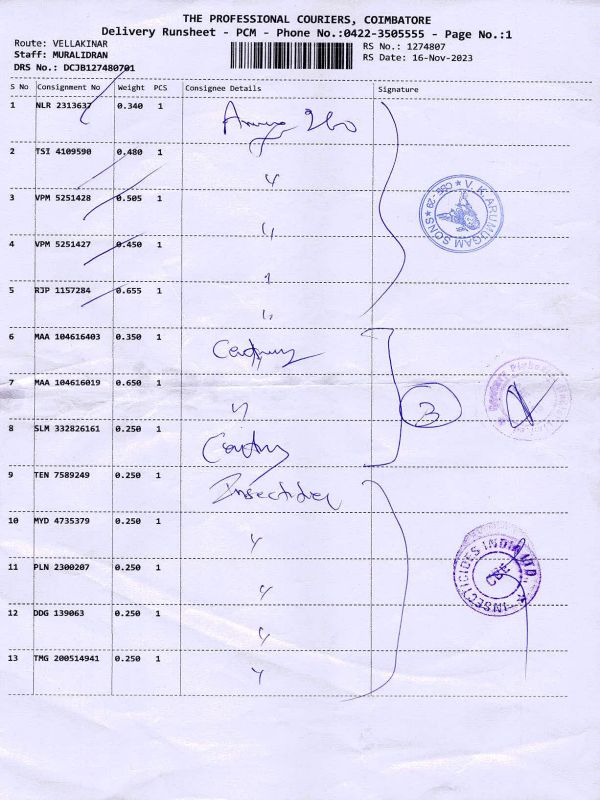 THE PROFESSIONAL COURIERS, COIMBATORE
Delivery Runsheet - PCM - Phone No.:0422-3505555 - Page No.:1
Route: VELLAKINAR
RS No.: 1274807
Staff: MURALIDRAN
RS Date: 16-Nov-2023
DRS No.: DCJB127480701
S No Consignment No Weight PCS Consignee Details Signature
1 NLR 2313637 0.340 1
2 TSI 4109590 0.480 1
3 VPM 5251428 0.505 1
V.K. ARUMUGAM SONS ★ CBE-29 ★
4 VPM 5251427 0.450 1
5 RJP 1157284 0.655 1
6 MAA 104616403 0.350 1
7 MAA 104616019 0.650 1
3
8 SLM 332826161 0.250 1
9 TEN 7589249 0.250 1
10 MYD 4735379 0.250 1
11 PLN 2300207 0.250 1
INSECTICIDES INDIA LTD. ★ CBE
12 DDG 139063 0.250 1
13 TMG 200514941 0.250 1